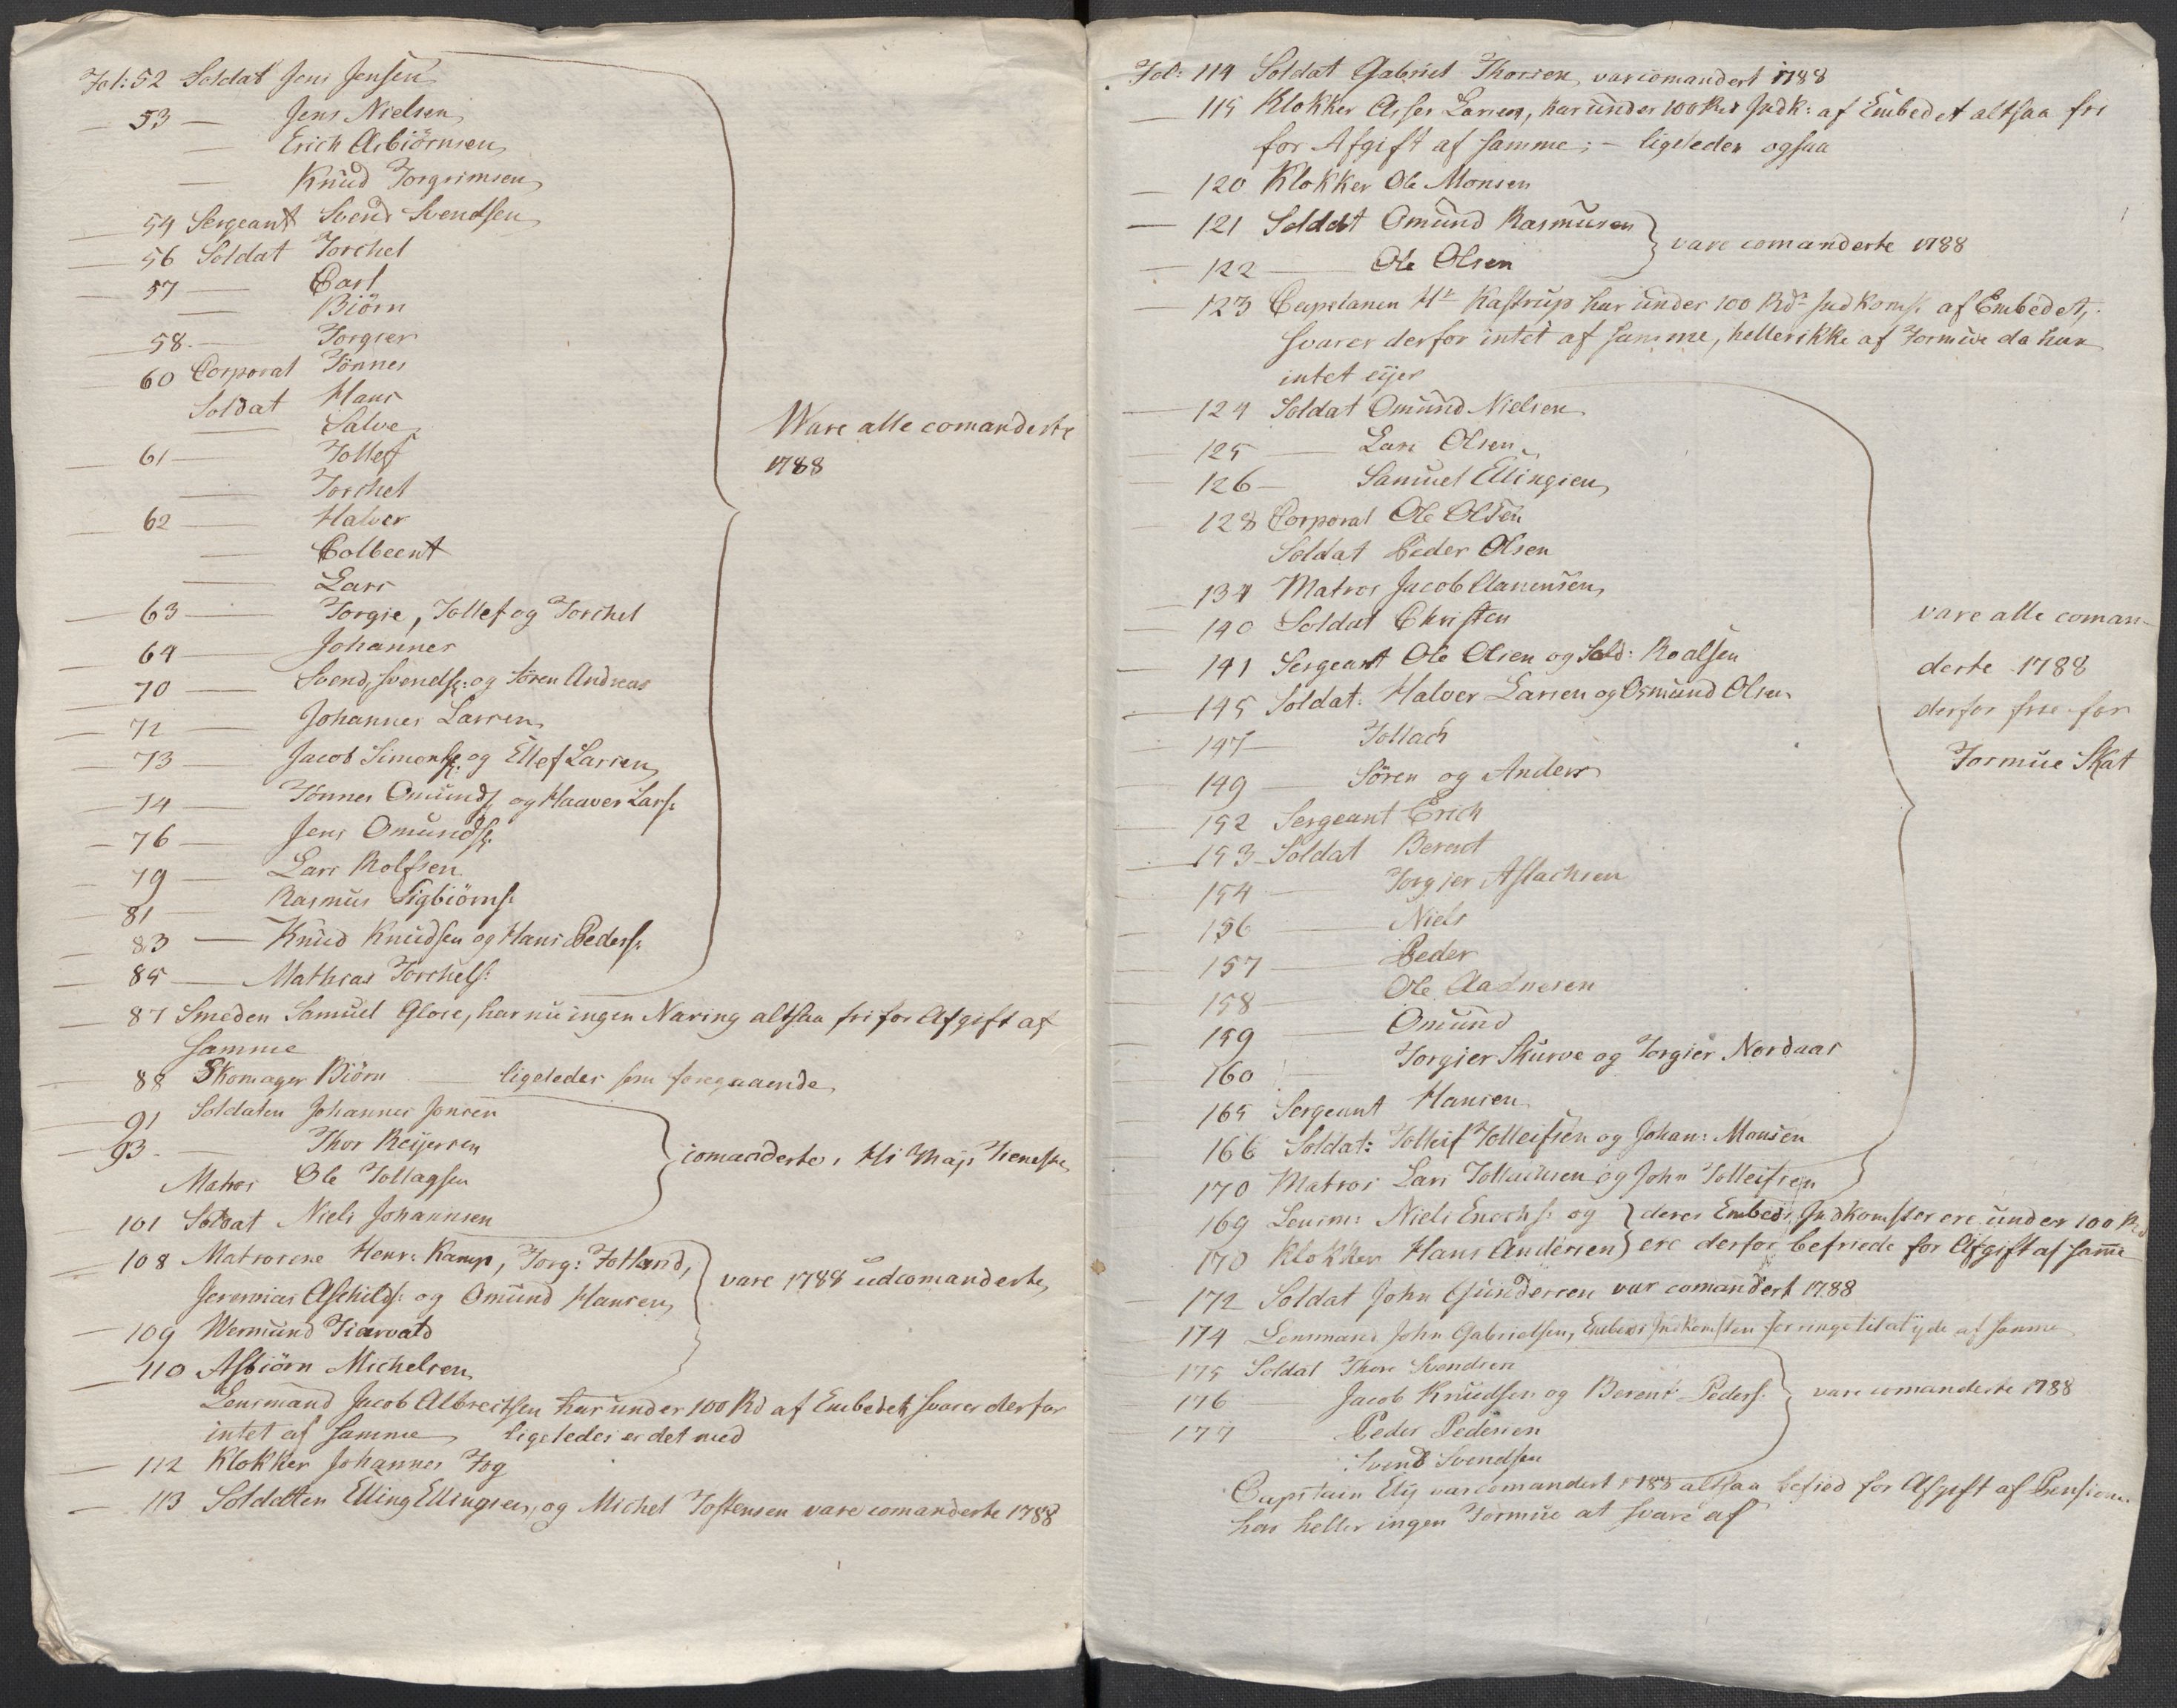 Fol: 52 Soldat Jens Jensen
— 53 — Jens Nielsen
— Erich Asbiörnsen
— Knud Torgrimsen
— 54 Sergeant Svend Svendsen
— 56 Soldat Torchel
— 57 — Carl
— Biörn
— 58 — Torgier
— 60 Corporal Tönnes
Soldat Hans
— Salve
— 61 — Tollef
— Torchel
— 62 — Halver
— Colbeent
— Lars
— 63 — Torgie, Tollef og Torchel
— 64 — Johannes
— 70 — Svend Svends: og Sören Andreas
— 72 — Johannes Larsen
— 73 — Jacob Simons: og Ellef Larsen
— 74 — Tönnes Omunds: og Haaver Lars:
— 76 — Jens Omunds:
— 79 — Lars Rolfsen
— 81 — Rasmus Sigbiörns:
— 83 — Knud Knudsen og Hans Peders:
— 85 — Mathias Torchels:
Ware alle comanderte
1788
— 87 Smeden Samuel Glose, har nu ingen Næring altsaa fri for Afgift af
samme
— 88 Skomager Biörn — ligeledes som foregaaende
— 91 Soldaten Johannes Jonsen
— 93 — Thor Reijersen
Matros Ole Tollagsen
— 101 Soldat Niels Johannsen
comanderte i Hs Majs Tieneste
— 108 Matroserne Henr: Kamp, Torg: Totland,
Jeremias Aschilds: og Omund Hansen
— 109 Wermund Tiorvald
— 110 Asbiörn Michelsen
vare 1788 udcomanderte
Lensmand Jacob Albrectsen har under 100 Rd af Embedet svarer derfor
intet af samme ligeledes er det med
— 112 Klokker Johannes Fog
— 113 Soldaten Elling Ellingsen, og Michel Tostensen vare comanderte 1788
Fol: 114 Soldat Gabriel Thorsen var comandert 1788
— 115 Klokker Asser Larsen, har under 100 Rd Indk: af Embedet altsaa fri
for Afgift af samme; — ligeledes ogsaa
— 120 Klokker Ole Monsen
— 121 Soldat Omund Rasmusen
— 122 — Ole Olsen
vare comanderte 1788
— 123 Capelanen Hr Kastrup har under 100 Rdr Indkomst af Embedet,
svarer derfor intet af samme, heller ikke af Formue da han
intet eijer
— 124 Soldat Omund Nielsen
— 125 — Lars Olsen
— 126 — Samuel Ellingsen
— 128 Corporal Ole Olsen
Soldat Peder Olsen
— 134 Matros Jacob Clausen
— 140 Soldat Christen
— 141 Sergeant Ole Olsen og Sold: Roalsen
— 145 Soldat: Halver Larsen og Osmund Olsen
— 147 — Tollach
— 149 — Sören og Anders
— 152 Sergeant Erich
— 153 Soldat Berent
— 154 — Torgier Aslachsen
— 156 — Niels
— 157 — Peder
— 158 — Ole Aadnesen
— 159 — Omund
— 160 — Torgier Skurve og Torgier Nordaas
— 165 Sergeant Hansen
166 Soldat: Tolleif Tolleifsen og Johan: Monsen
170 Matros Lars Tollachsen og John Tolleifsen
vare alle coman-
derte 1788
derfor frie for
Formue Skat
169 Lensm: Niels Enochs: og
170 Klokker Hans Andersen
deres Embeds Indkomster ere under 100 Rd
ere derfor befriede for Afgift af same
— 172 Soldat John Gundersen var comandert 1788
— 174 Lensmand John Gabrielsen, Embeds Indkomsten for ringe til at yde af samme
— 175 Soldat Thore Svendsen
— 176 Jacob Knudsen og Berent Peders:
— 177 Peder Pedersen
Svend Svendsen
vare comanderte 1788
Capitain var comandert 1788 altsaa befried for Afgift af Pension
har heller ingen Formue at svare af